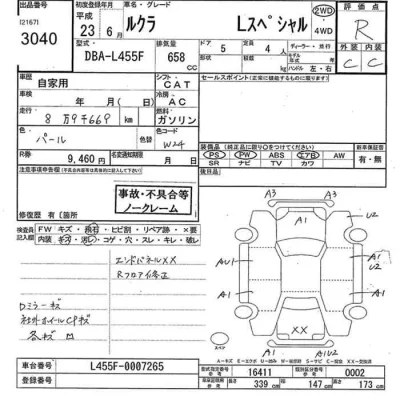 出品番号 初度登録年月 車名・グレード 評価点
[21671]
3040
平成 23年 6月 ルクラ Lスペシャル 2WD 4WD R
型式 排気量 ドア 定員 ディーラー・並行 外装 内装
DBA-L455F 658 cc 5 4人 モデル年式 年 ハンドル 左・右 C C
車歴 自家用 シフト CAT 積載量 kg セールスポイント(正常に機能するものに限ります。)
車検 年 月(日) 冷房 AC
走行 8万9千669km 燃料 ガソリン
色 パール 色替 色コード W24
装備品(純正品に限り○をつけてください) 新車保証書
PS PW ABS エアB AW 有・無
SR ナビ TV カワ
R券 9,460円 名変期限 月 日 後日品
注意事項申告欄(不具合含む)
事故・不具合等
ノークレーム
修復歴 有[箇所
検査員記入欄 FW キズ・飛石・ヒビ割・リペア跡・×要
内装 キズ・汚レ・コゲ・穴・スレ・キレ・破レ
エンドパネルXX
Rフロア修正
Dミラーキズ
社外ホイールCPキズ
各キズ凹
A3 A3
A1 U2
A1
AU1 A1
A1 A1
XX
A1 A1U2
スペア
車台番号 L455F-0007265
登録番号
型式指定番号 16411 類別区分番号 0002
長さ 339 cm 幅 147 cm 高さ 173 cm